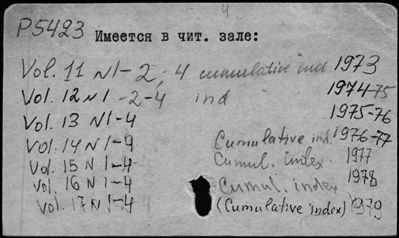 4
P5423 Имеется в чит. зале:
Vol. 11 N 1-2, -4 cumulative ind 1973
Vol. 12 N 1 -2-4 ind 1974-75
Vol. 13 N 1-4 1975-76
Vol. 14 N 1-4 Cumulative ind. 1976-77
Vol. 15 N 1-4 Cumul. index. 1977
Vol. 16 N 1-4 Cumul. index 1978
Vol. 17 N 1-4 (Cumulative index) 1979